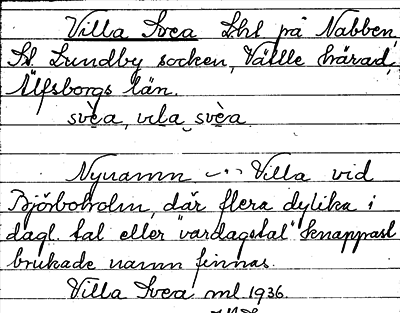 Villa Svea Lht på Nabben,
St. Lundby socken, Vättle härad,
Älfsborgs län.
svèa, vila svèa
Nynamn Villa vid
Björboholm, där flera dylika i
dagl. tal eller "vardagstal" knappast
brukade namn finnas.
Villa Svea ml 1936.